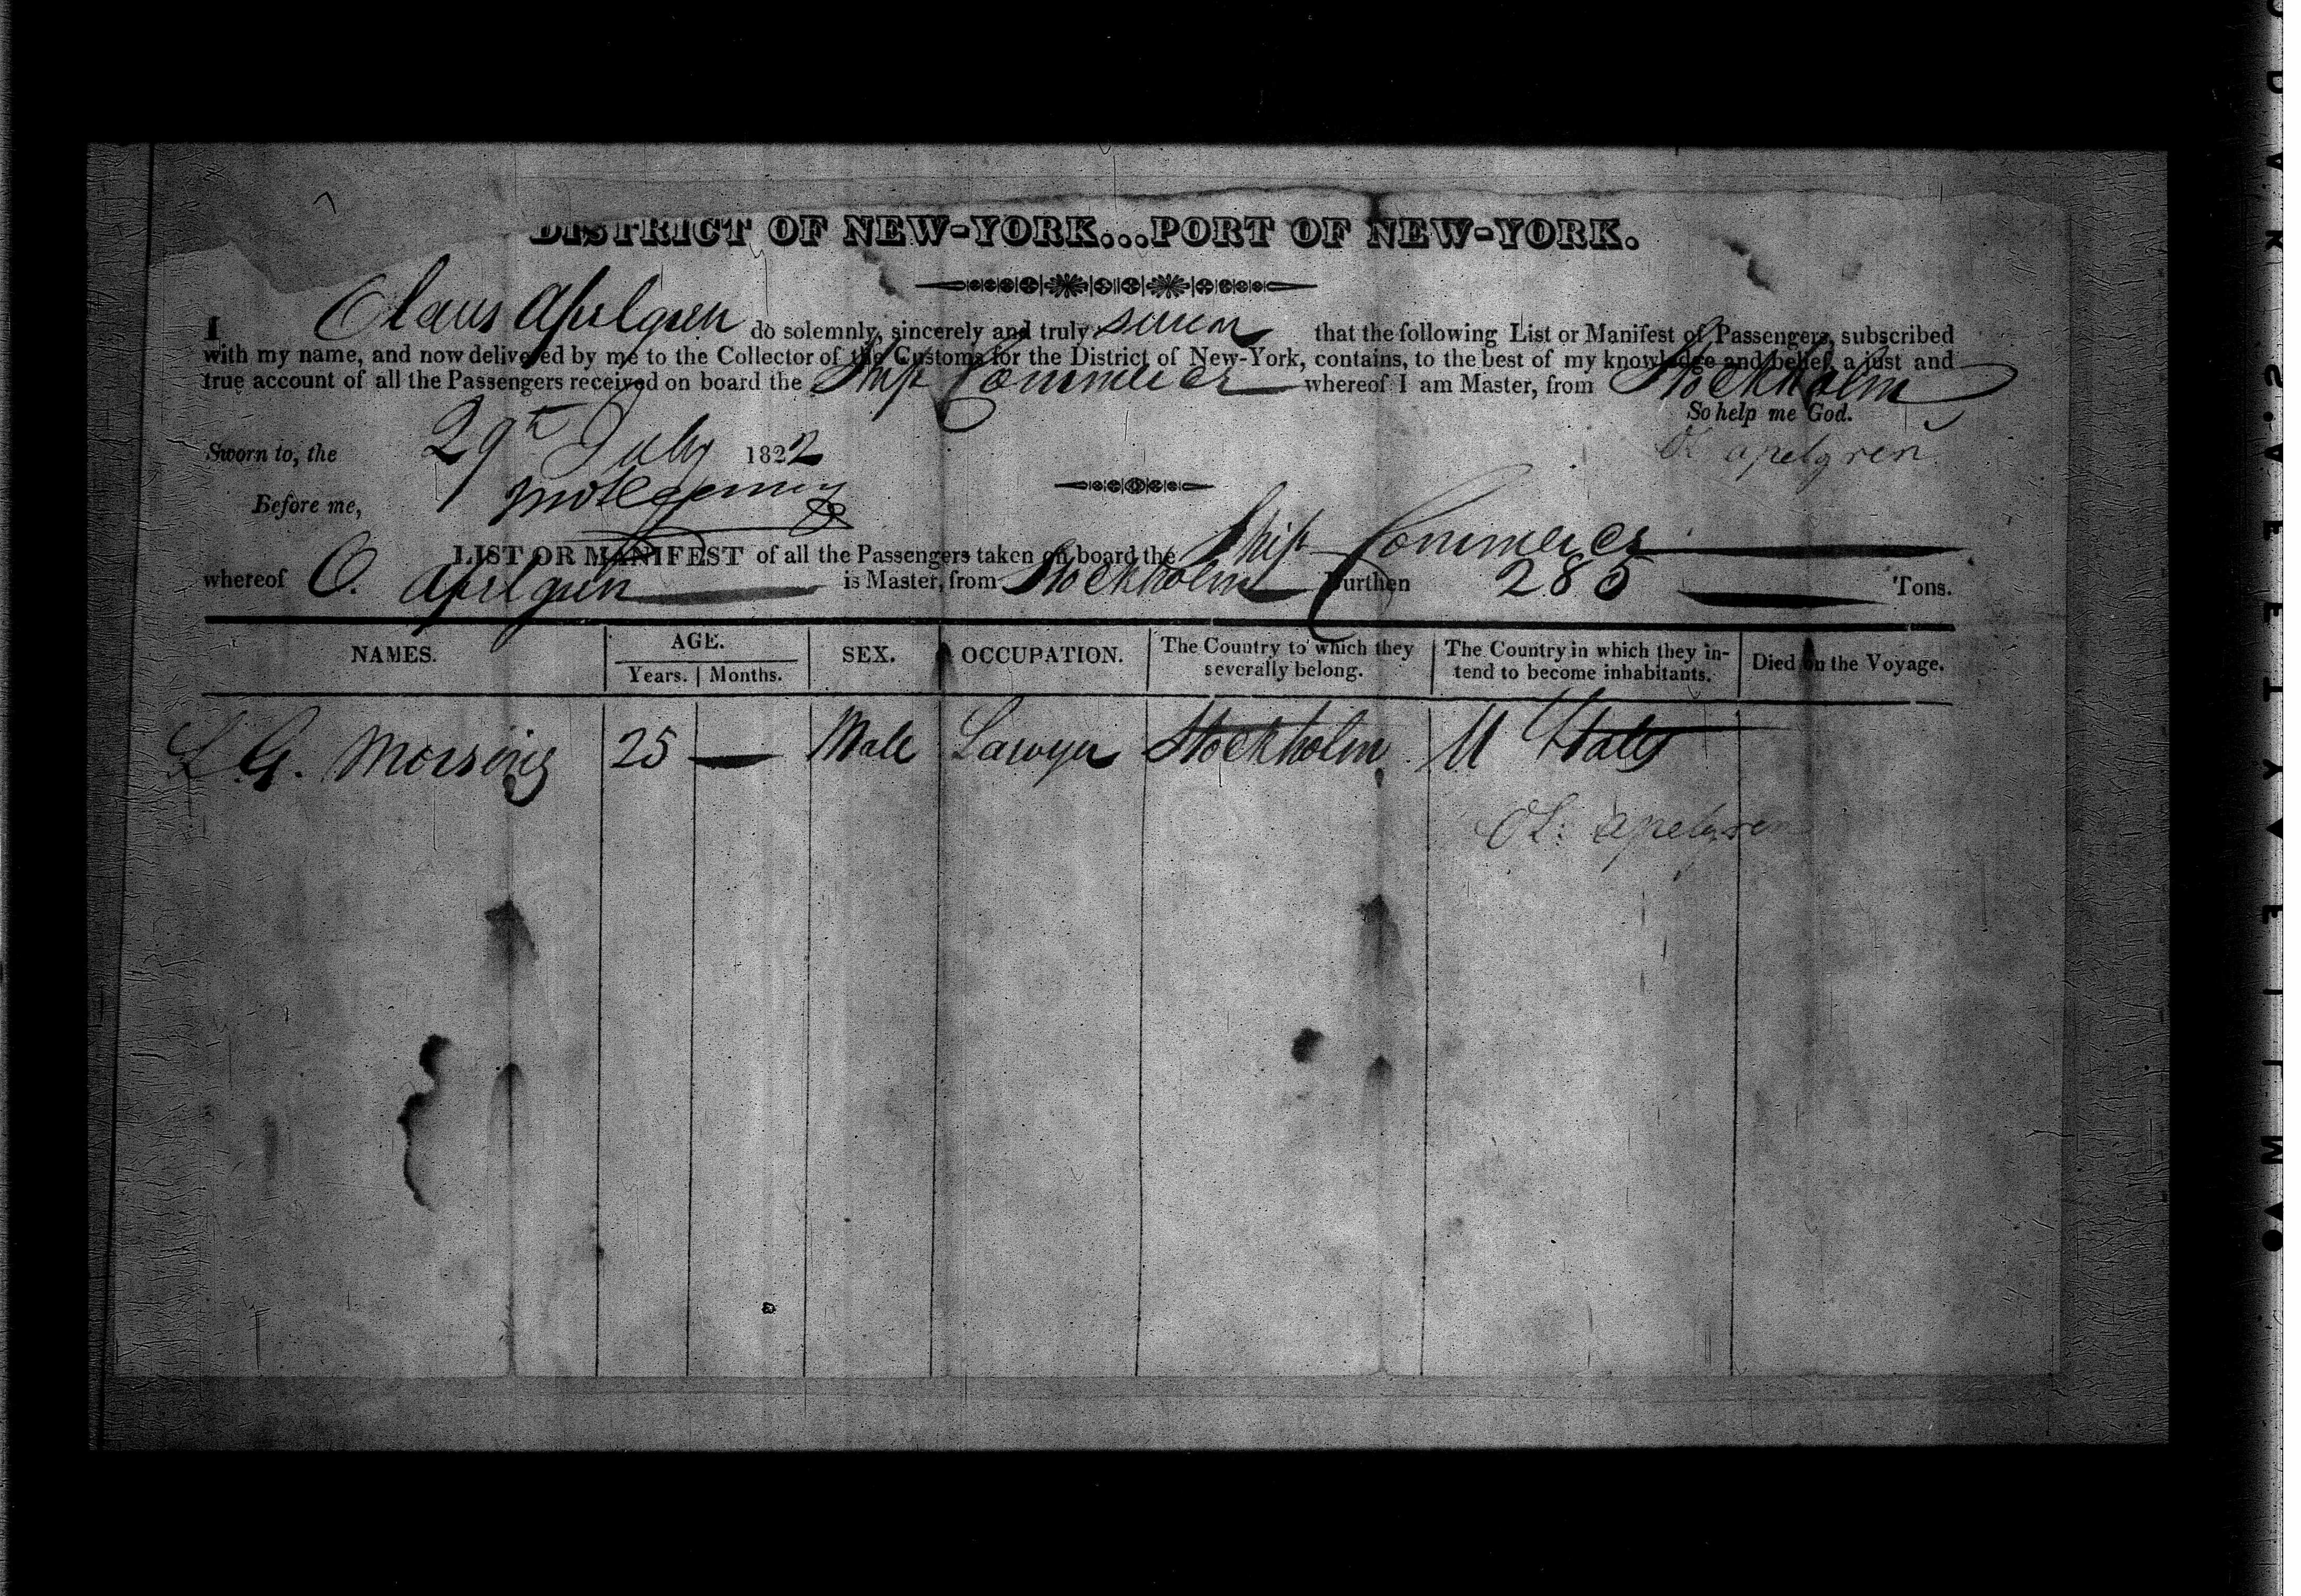 DISTRICT OF NEW-YORK...PORT OF NEW-YORK.
I Olaus Apelgren do solemnly, sincerely and truly swear that the following List or Manifest of Passengers, subscribed
with my name, and now delivered by me to the Collector of the Customs for the District of New-York, contains, to the best of my knowledge and belief, a just and
true account of all the Passengers received on board the Ship Commerce whereof I am Master, from Stockholm
So help me God.
Sworn to, the 29th July 1822
Ol apelgren
Before me,
LIST OR MANIFEST of all the Passengers taken on board the Ship Commerce
whereof O. Apelgren is Master, from Stockholm Burthen 285 Tons.
NAMES. AGE. Years. Months. SEX. OCCUPATION. The Country to which they severally belong. The Country in which they intend to become inhabitants. Died on the Voyage.
L G. Morsing 25 — Male Lawyer Stockholm U States
Ol: apelgren